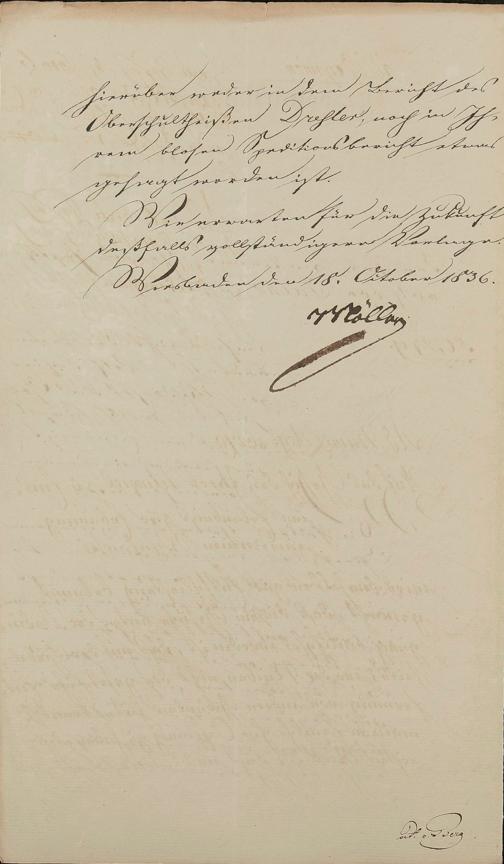 hierüber weder in dem Bericht des
Oberschultheißen Drexler, noch in Ih-
rem blosen Speditionsbericht etwas
gesagt worden ist.
Wir erwarten für die Zukunft
deßfalls vollständigere Vorlage.
Wiesbaden den 18. October 1836.
Möller